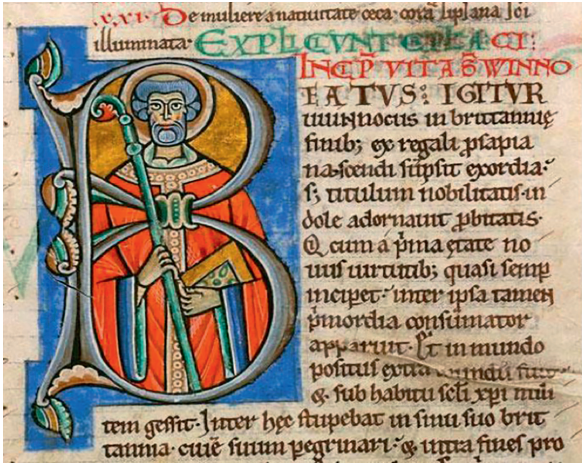 .xxi. De muliere a natiuitate ceca. corā
illuminata. EXPLICIUNT
INCIP VITA B WINNO
BEATVS: IGITVR
uuinnocus in brittannię
finib; ex regali ꝓsapia
nascendi sūpsit exordia.
s; titulum nobilitatis in
dole adornauit ꝓbitatis.
Q cum a p̄ma ętate no
uis uirtutib; quasi semꝑ
incipet. inter ipsa tamen
p̄mordia consūmator
apparuit. S; in mundo
positus extra mundū fuit
& sub habitu scłi xp̄i mili
tem gessit. Inter hęc stupebat in sinu suo brit
tannia. ciuē suum ꝑegrinari. & ultra fines pro